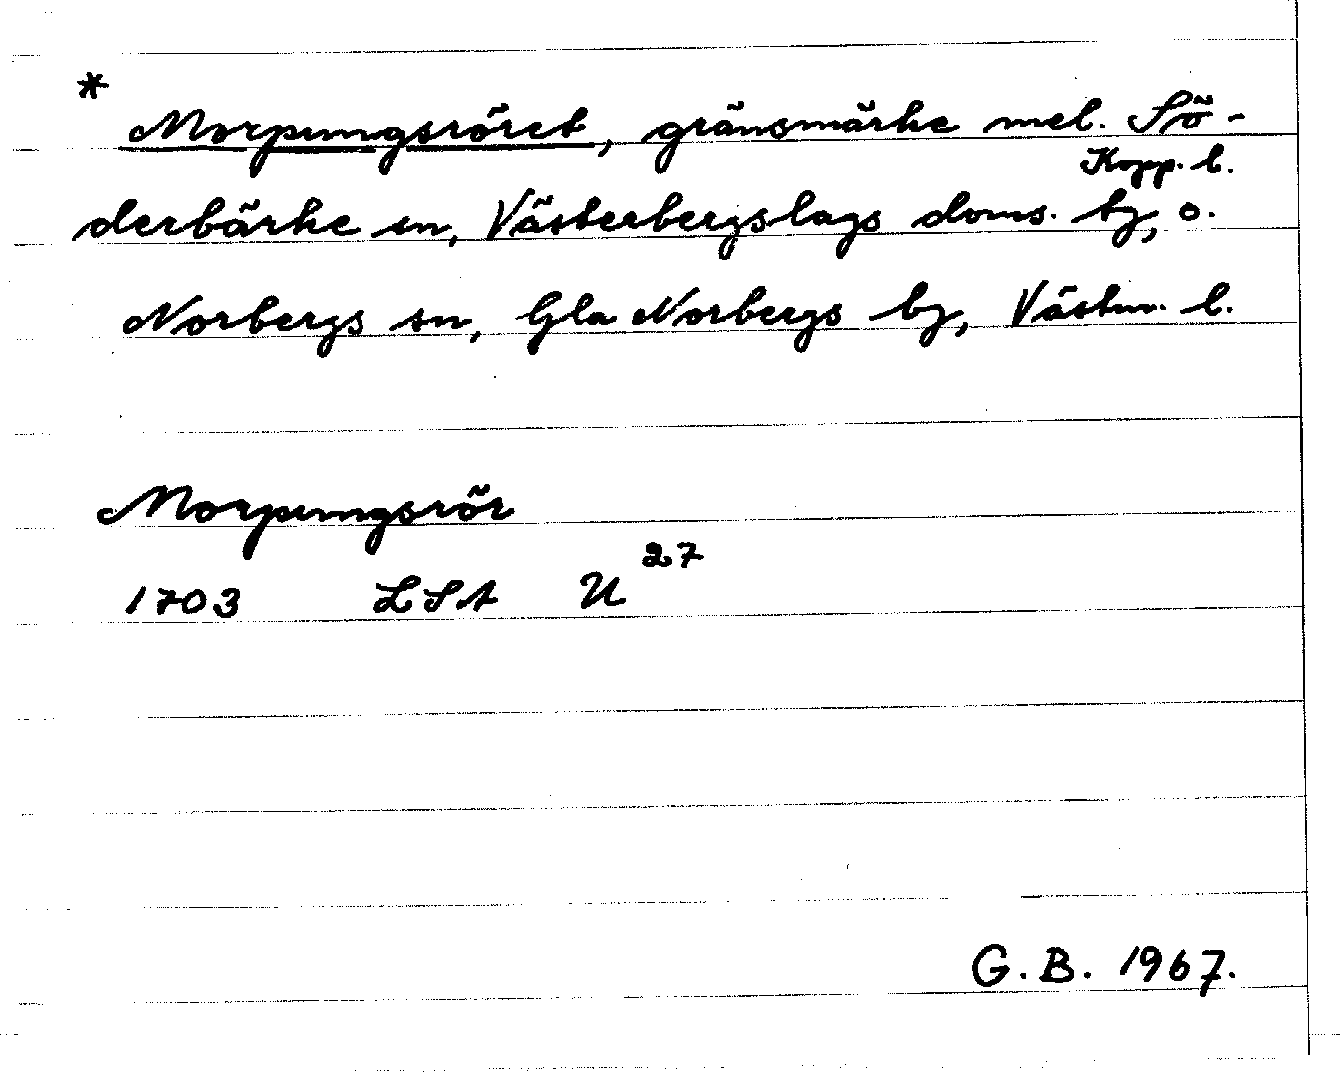 *
Morpungsröret, gränsmärke mel. Sö-
Kopp. l.
derbärke sn, Västerbergslags doms. tg, o.
Norbergs sn, Gla Norbergs bg, Västm. l.
Morpungsrör
1703 LSA U 27
G.B. 1967.